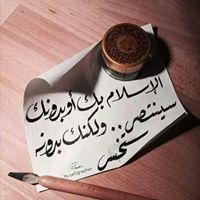 الإسلام بك أو بدونك
سينتصر.. ولكنك بدونه
ستخسر